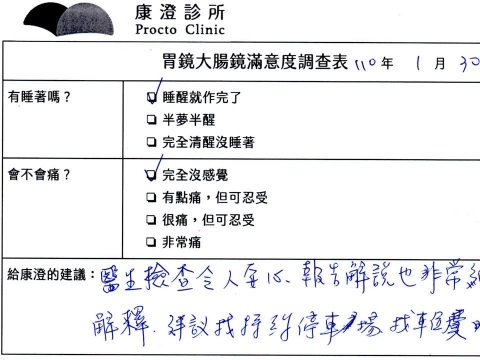 康澄診所
Procto Clinic
胃鏡大腸鏡滿意度調查表 110年 1月 30
有睡著嗎?
☑ 睡醒就作完了
☐ 半夢半醒
☐ 完全清醒沒睡著
會不會痛?
☑ 完全沒感覺
☐ 有點痛,但可忍受
☐ 很痛,但可忍受
☐ 非常痛
給康澄的建議:醫生檢查令人安心、報告解說也非常
解釋、建議找特約停車場 找車費